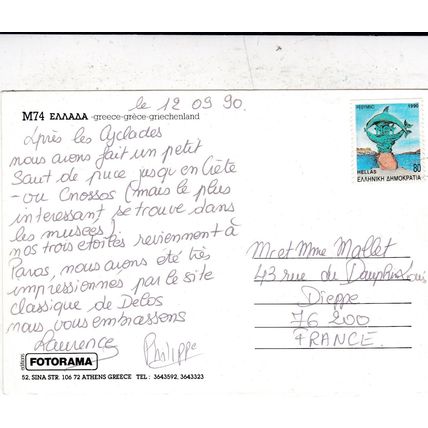 le 12 09 90.
M74 ΕΛΛΑΔΑ -greece-grèce-griechenland
Après les Cyclades
nous avons fait un petit
Saut de puce jusqu'en Crète
- ou Cnossos (mais le plus
interessant se trouve dans
les musées).
nos trois etoiles reviennent à
Paros, nous avons été très
impressionnes par le site
classique de Delos
nous vous embrassons
Laurence Philippe
1990
HELLAS 80
ΕΛΛΗΝΙΚΗ ΔΗΜΟΚΡΑΤΙΑ
Mr et Mme Mallet
43 rue du Dauphin Louis
Dieppe
76 200
FRANCE.
FOTORAMA
52, SINA STR. 106 72 ATHENS GREECE TEL: 3643592, 3643323